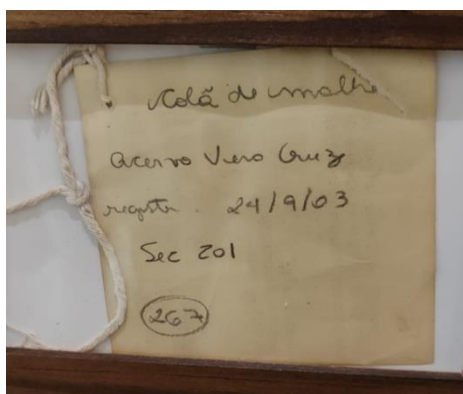 de malha
acervo Vera Cruz
registro. 24/9/03
Sec 201
267